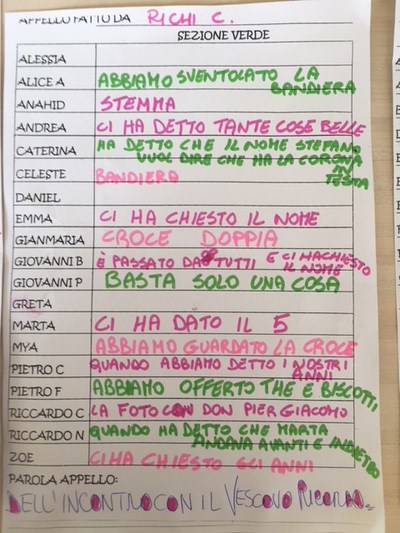 APPELLO FATTO DA RICHI C.
SEZIONE VERDE
ALESSIA
ALICE A ABBIAMO SVENTOLATO LA
BANDIERA
ANAHID STEMMA
ANDREA CI HA DETTO TANTE COSE BELLE
CATERINA HA DETTO CHE IL NOME STEFANO
VUOL DIRE CHE HA LA CORONA
IN
TESTA
CELESTE BANDIERA
DANIEL
EMMA CI HA CHIESTO IL NOME
GIANMARIA CROCE DOPPIA
GIOVANNI B È PASSATO DA TUTTI E CI HACHIESTO
IL NOME
GIOVANNI P BASTA SOLO UNA COSA
GRETA
MARTA CI HA DATO IL 5
MYA ABBIAMO GUARDATO LA CROCE
PIETRO C QUANDO ABBIAMO DETTO I NOSTRI
ANNI
PIETRO F ABBIAMO OFFERTO THE E BISCOTTI
RICCARDO C LA FOTO CON DON PIER GIACOMO
RICCARDO N QUANDO HA DETTO CHE MARTA
ANDAVA AVANTI E INDIETRO
ZOE CI HA CHIESTO GLI ANNI
PAROLA APPELLO:
DELL'INCONTRO CON IL VESCOVO RICORDO